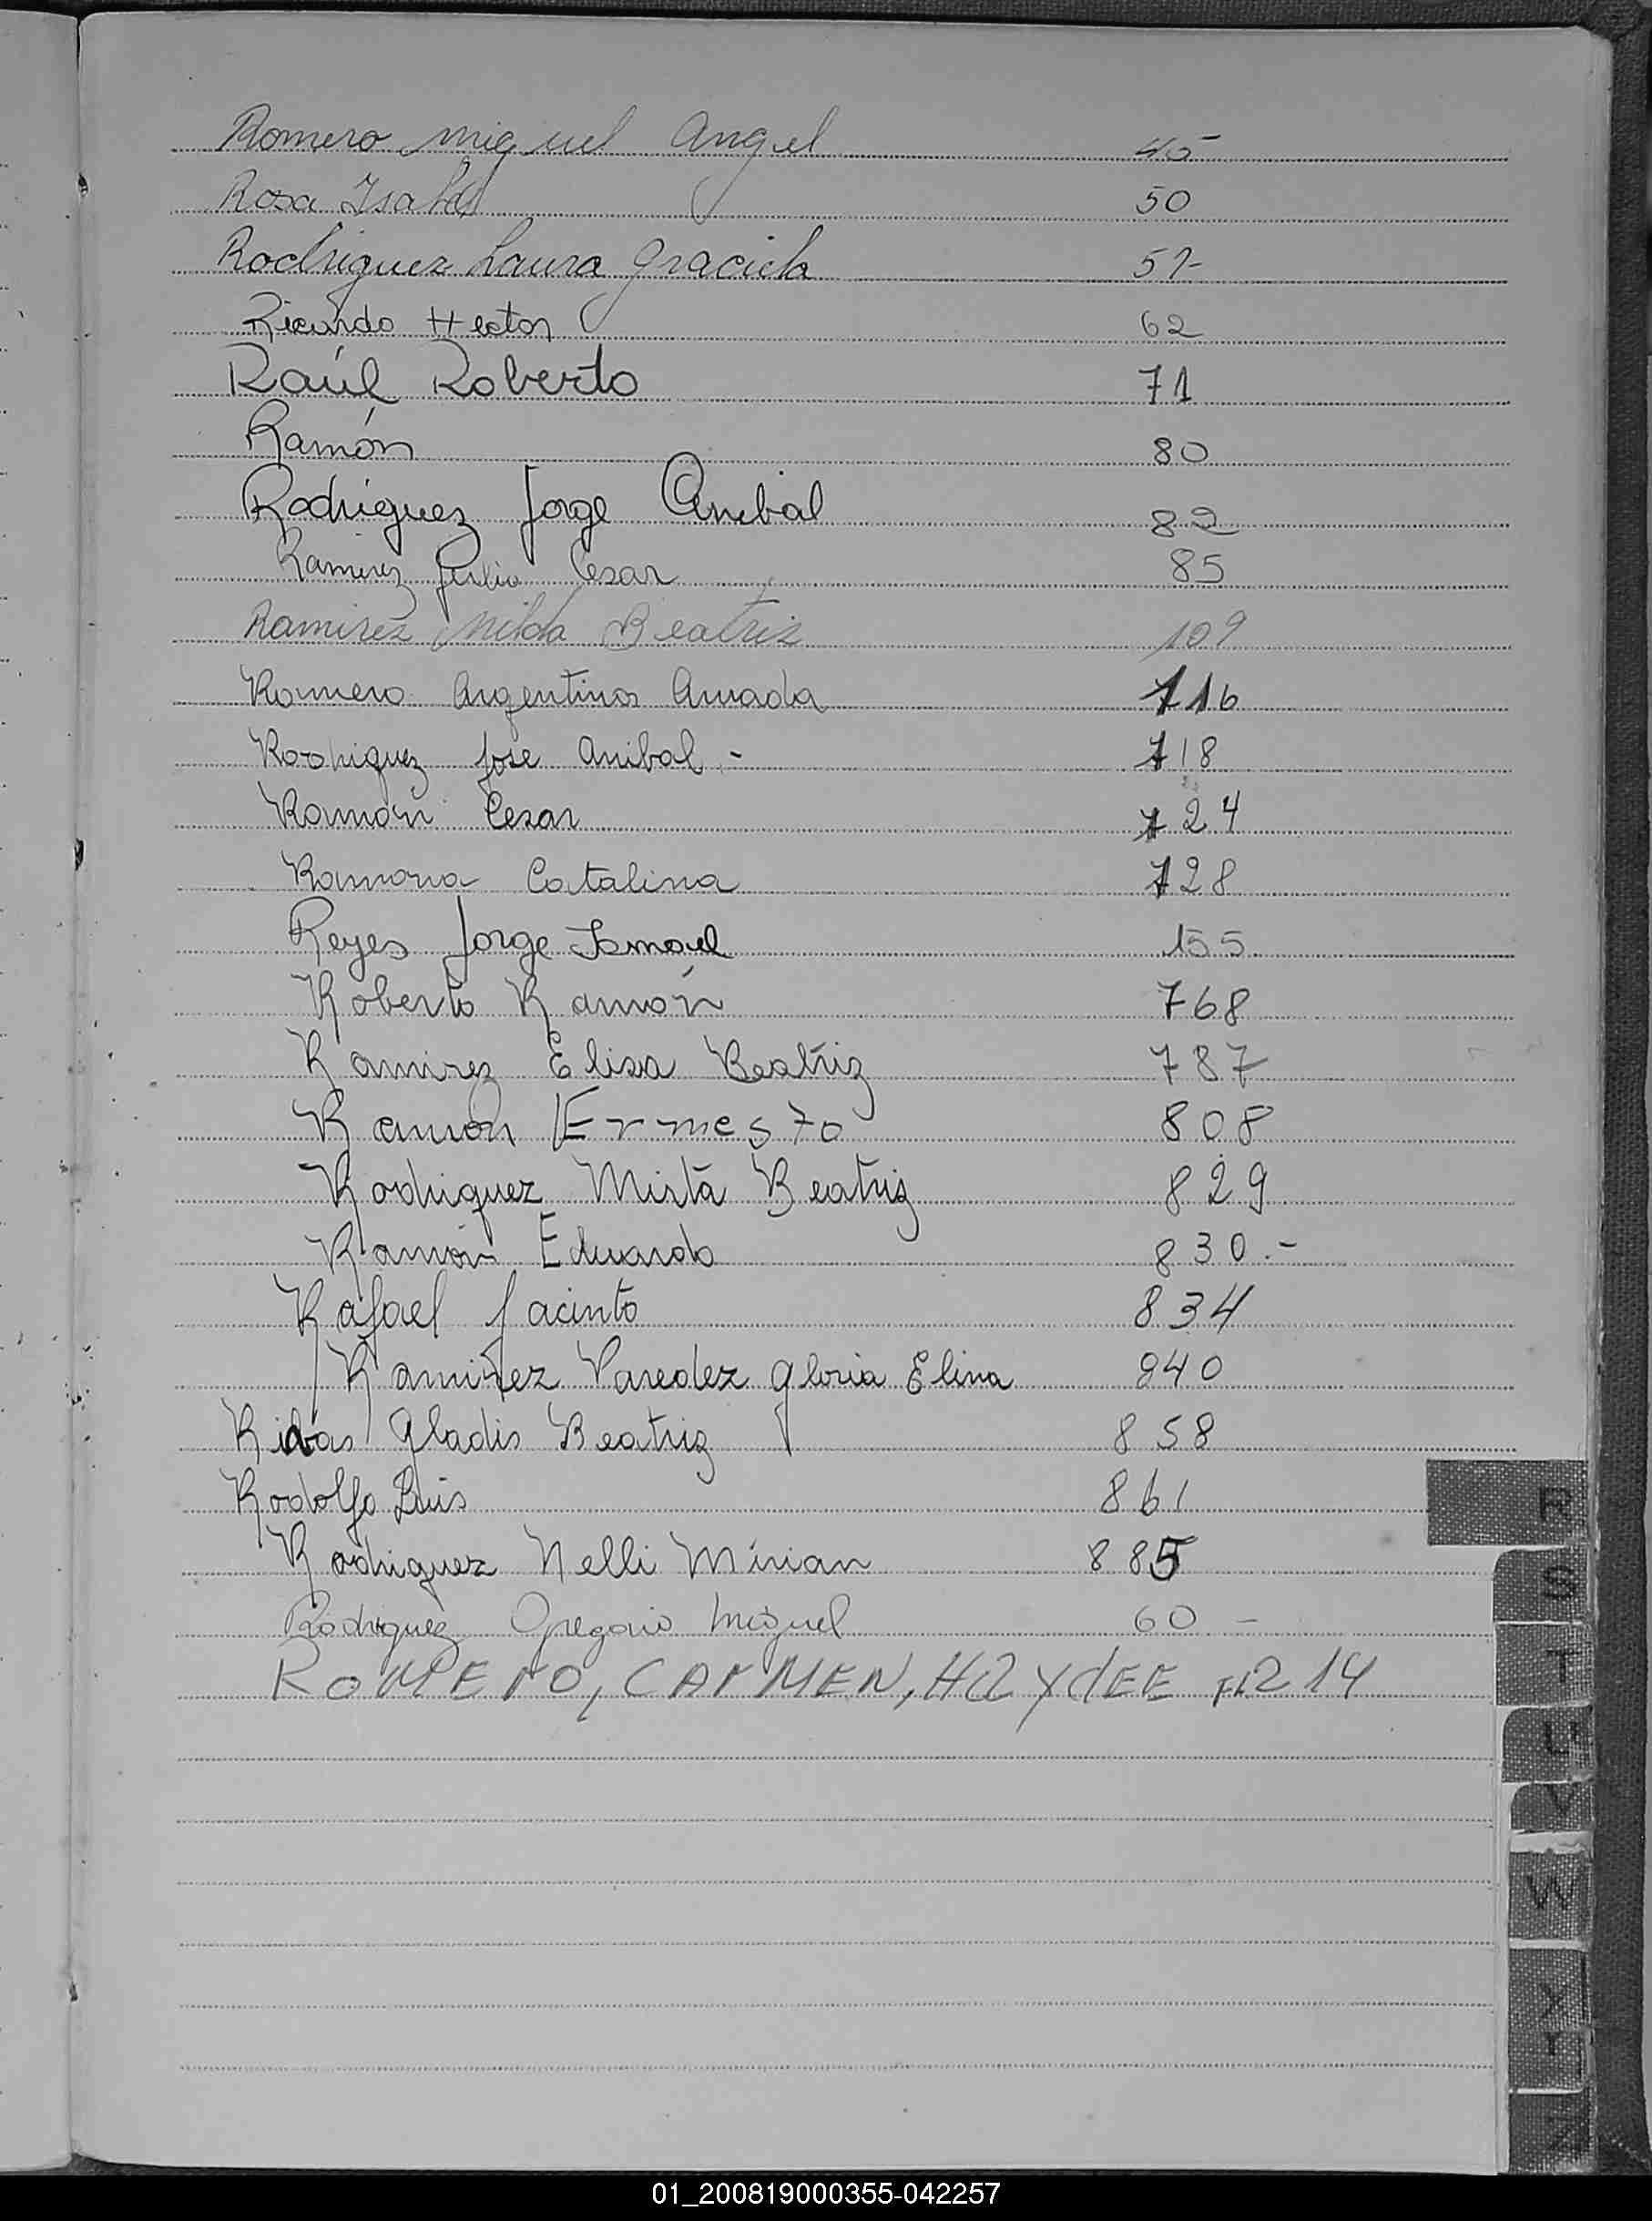 Romero Miguel Angel 45
Rosa Isabel 50
Rodriguez Laura Graciela 57-
Ricardo Hector 62
Raúl Roberto 71
Ramón 80
Rodriguez Jorge Anibal 82
Ramirez Julio Cesar 85
Ramirez Nilda Beatriz 109
Romero Argentina Amada 116
Rodriguez Jose Anibal.- 118
Ramón Cesar 124
Ramona Catalina 128
Reyes Jorge Ismael 155
Roberto Ramón 768
Ramirez Elisa Beatriz 787
Ramón Ernesto 808
Rodriguez Mirta Beatriz 829
Ramón Eduardo 830.-
Rafael Jacinto 834
Ramirez Paredez Gloria Elina 840
Rivas Gladis Beatriz 858
Rodolfo Luis 861
Rodriguez Nelli Mirian 885
Rodriguez Gregorio Miguel 60 -
ROMERO, CARMEN, HAYdEE 214
R
S
T
U
V
W
X
Y
Z
01_200819000355-042257